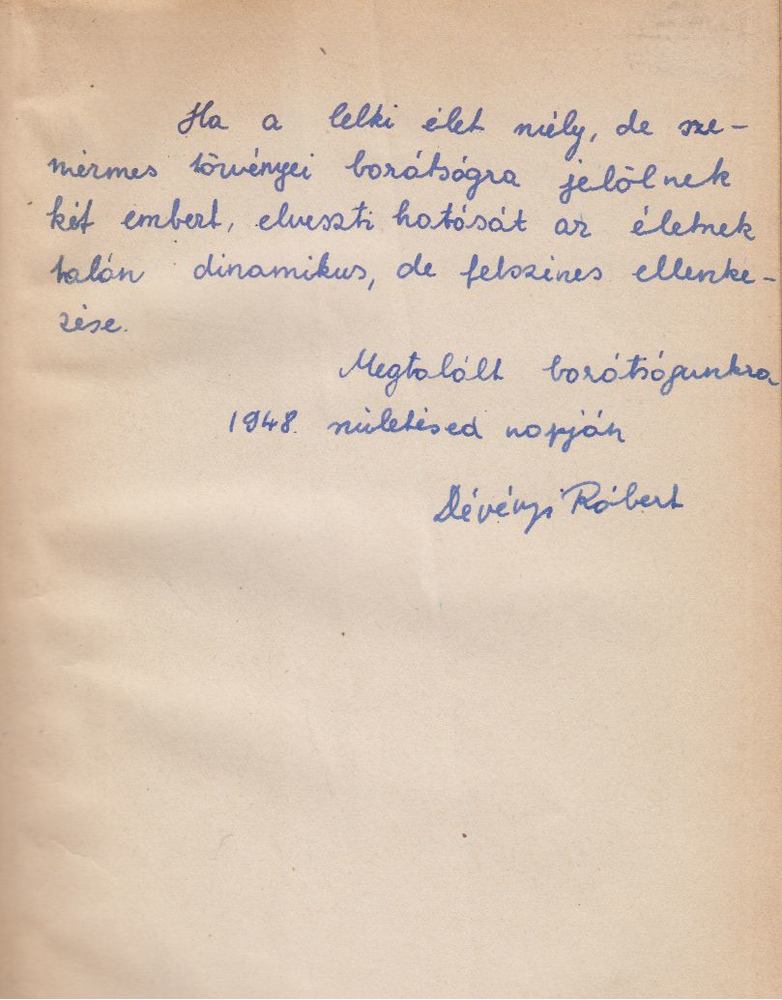 Ha a lelki élet mély, de sze-
mérmes törvényei barátságra jelölnek
két embert, elveszti hatását az életnek
talán dinamikus, de felszínes ellenke-
zése.
Megtalált barátságunkra
1948. születésed napján
Dévényi Róbert